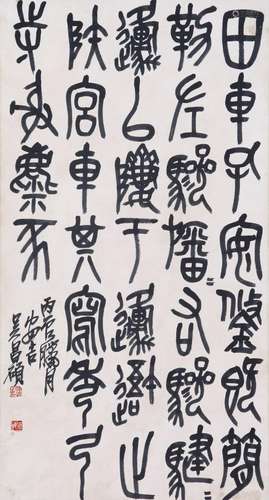 田車孔安鋚既簡
勒左驂旛右驂騝
以隮于邍止
陕宮車其寫秀弓
寺射麋豕
丙辰臘月
安吉
吳昌碩